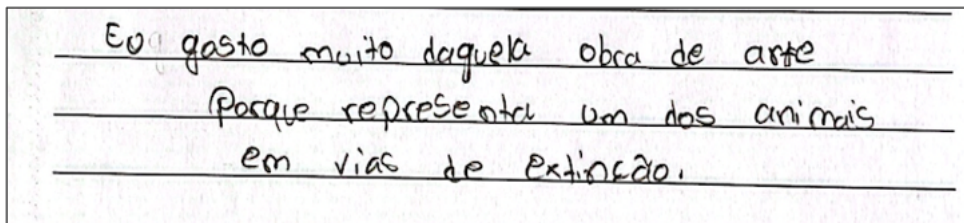 Eu gosto muito daquela obra de arte
Porque representa um dos animais
em vias de extinção.